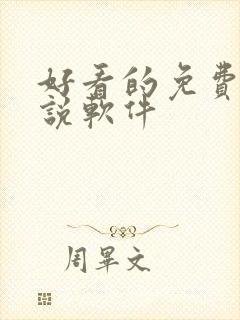 好看的免費
說軟件
周畢文